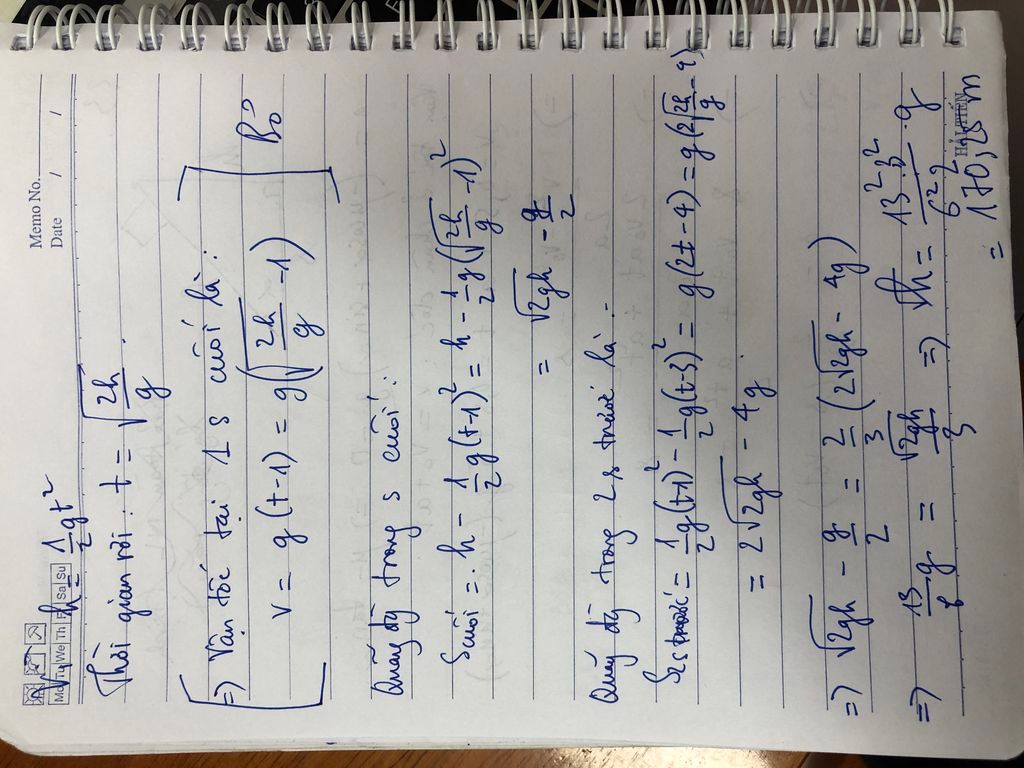 Memo No.
Date / /
Mo Tu We Th Fr Sa Su
h = 1/2 gt²
Thời gian rơi: t = √(2h/g).
[=) Vận tốc tại 1 s cuối là:
v = g(t-1) = g(√(2h/g) -1) ] Bỏ
Quãng đg trong s cuối:
Scuối = h - 1/2 g(t-1)² = h - 1/2 g(√(2h/g) -1)²
= √2gh - g/2
Quãng đg trong 2s trước là:
S2s trước = 1/2 g(t-1)² - 1/2 g(t-3)² = g(2t-4) = g(2√(2h/g) -4)
= 2√2gh - 4g
=) √2gh - g/2 = 2/3 (2√2gh - 4g)
=) 13/6 g = √2gh/3 =) h = 13².3²/6².2 .g
= 190,125 m
HẢI TIẾN